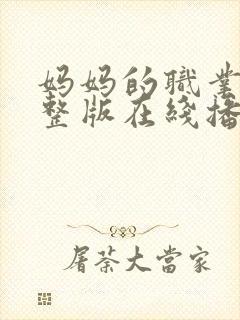 妈妈的職業
整版在綫播
屠荼大當家